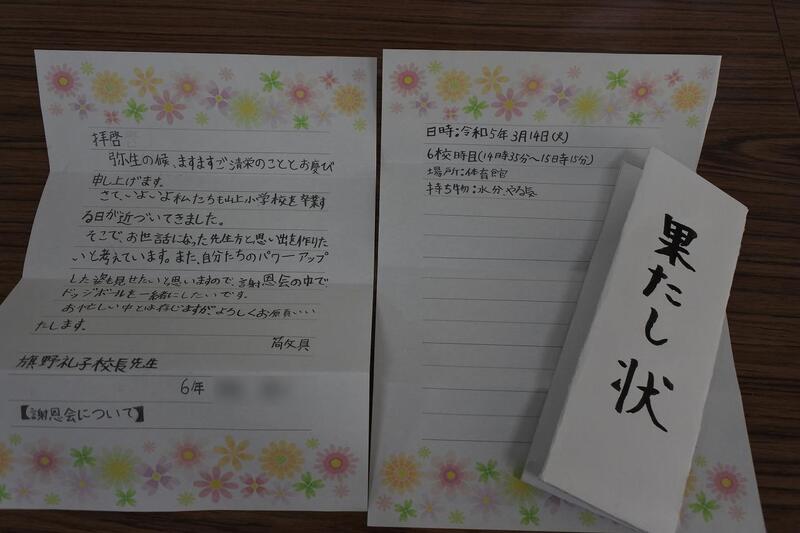 拝啓
弥生の候、ますますご清栄のこととお慶び
申し上げます。
さて、いよいよ私たちも山上小学校を卒業す
る日が近づいてきました。
そこで、お世話になった先生方と思い出を作りた
いと考えています。また、自分たちのパワーアップ
した姿も見せたいと思いますので、謝恩会の中で、
ドッジボールを一緒にしたいです。
お忙しい中とは存じますが、よろしくお願いい
たします。
敬具
旗野礼子校長先生
6年
【謝恩会について】
日時：令和5年3月14日(火)
6校時目(14時35分～15日時15分)
場所：体育館
持ち物：水分、やる気
果たし状